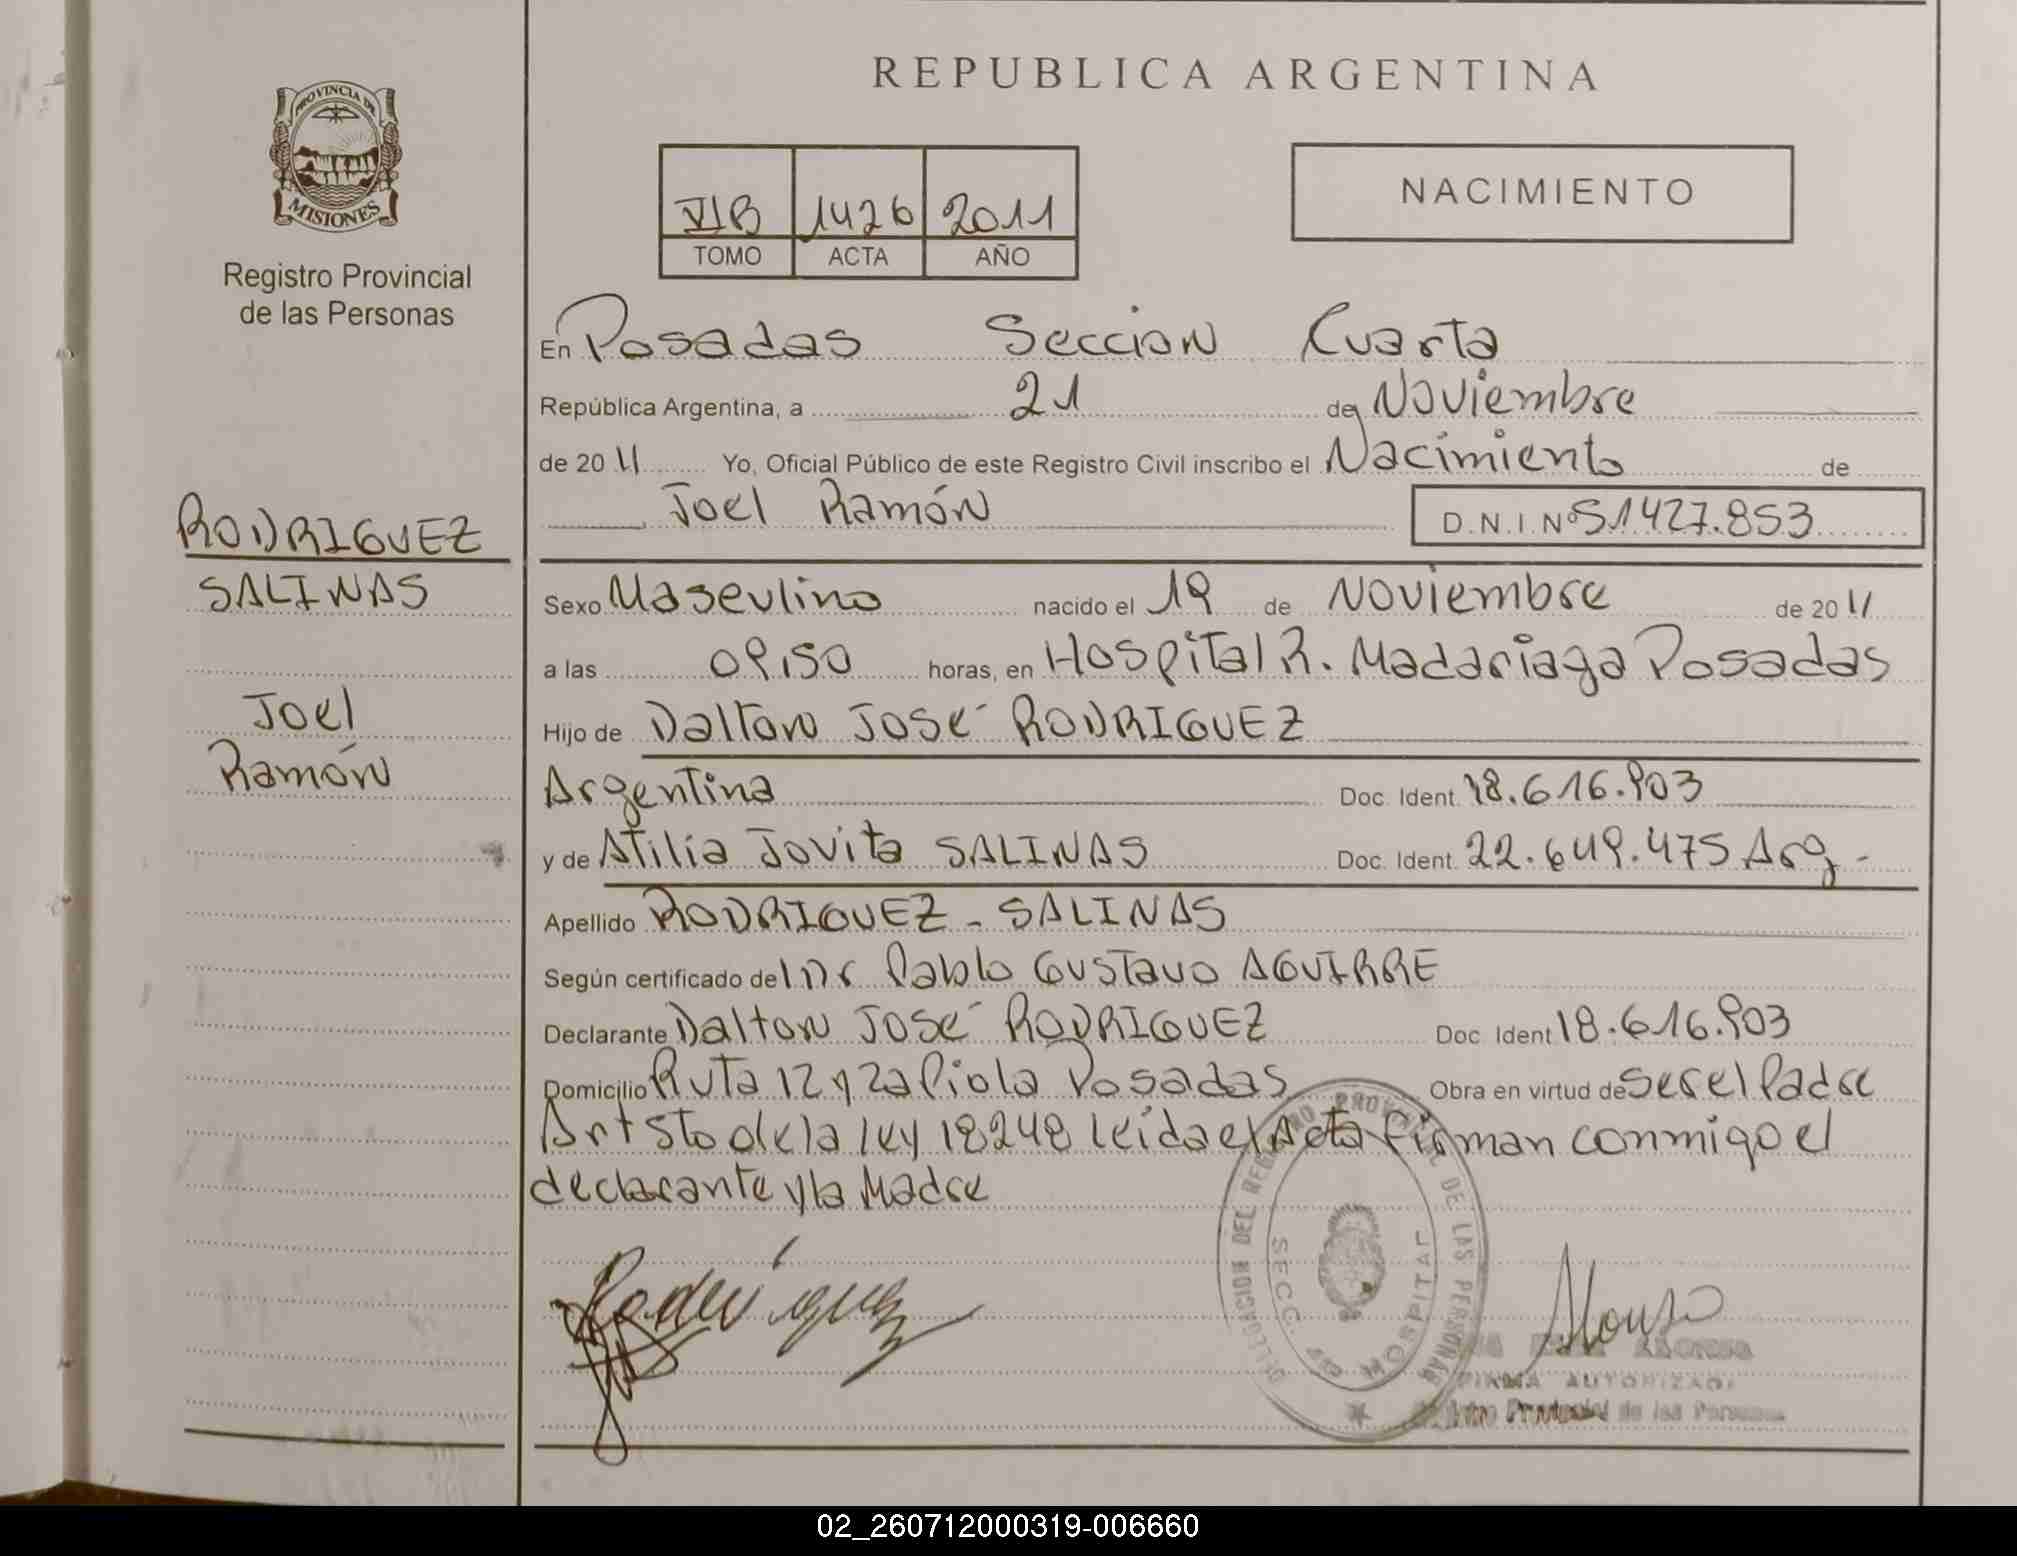 REPUBLICA ARGENTINA
PROVINCIA DE
MISIONES
Registro Provincial
de las Personas
VIB 1426 2011
TOMO ACTA AÑO
NACIMIENTO
En Posadas Seccion Cuarta
República Argentina, a 21 de Noviembre
de 20 11 Yo, Oficial Público de este Registro Civil inscribo el Nacimiento de
Joel Ramón D.N.I. Nº 51427.853
RODRIGUEZ
SALINAS
Joel
Ramón
Sexo Masculino nacido el 19 de Noviembre de 20 11
a las 09,50 horas, en Hospital R. Madariaga Posadas
Hijo de Dalton José RODRIGUEZ
Argentina Doc. Ident. 18.616.903
y de Atilia Jovita SALINAS Doc. Ident. 22.649.475 Arg -
Apellido RODRIGUEZ - SALINAS
Según certificado de Dr Pablo Gustavo AGUIRRE
Declarante Dalton José RODRIGUEZ Doc. Ident 18.616.903
Domicilio Ruta 12 y Zapiola Posadas Obra en virtud de ser el Padre
Art 5to de la ley 18248 leida el Acta firman conmigo el
declarante y la Madre
Rodriguez
DELEGACION DEL REGISTRO PROVINCIAL DE LAS PERSONAS
SECC. HOSPITAL
Alonso
ALONSO
FIRMA AUTORIZADA
Registro Provincial de las Personas
02_260712000319-006660